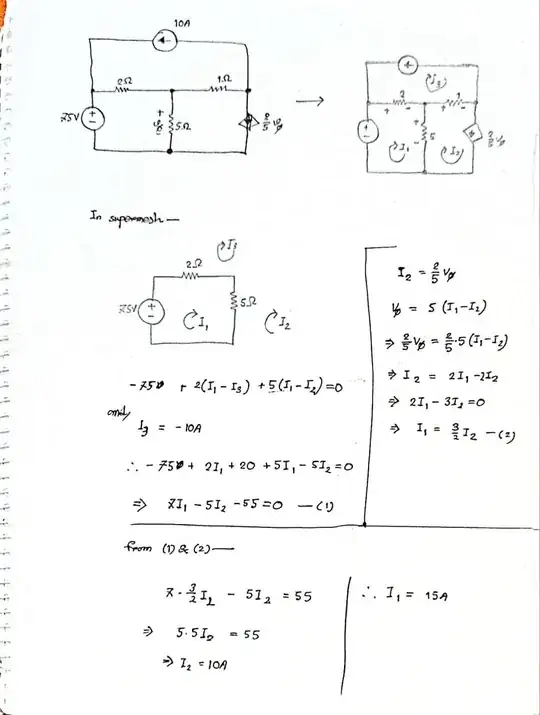 10A
2Ω
1Ω
75V
+
Vϕ
-
5Ω
2/5 Vϕ
→
I3
+ 2 -
+ 1 -
+ 5 -
I1
I2
2/5 Vϕ
In supermesh —
I3
2Ω
75V
5Ω
I1
I2
-75V + 2(I1 - I3) + 5(I1 - I2) = 0
only
I3 = -10A
∴ -75V + 2I1 + 20 + 5I1 - 5I2 = 0
⇒ 7I1 - 5I2 - 55 = 0 — (1)
I2 = 2/5 Vϕ
Vϕ = 5 (I1 - I2)
⇒ 2/5 Vϕ = 2/5 · 5 (I1 - I2)
⇒ I2 = 2I1 - 2I2
⇒ 2I1 - 3I2 = 0
⇒ I1 = 3/2 I2 — (2)
from (1) & (2) —
7 · 3/2 I2 - 5I2 = 55
⇒ 5.5I2 = 55
⇒ I2 = 10A
∴ I1 = 15A